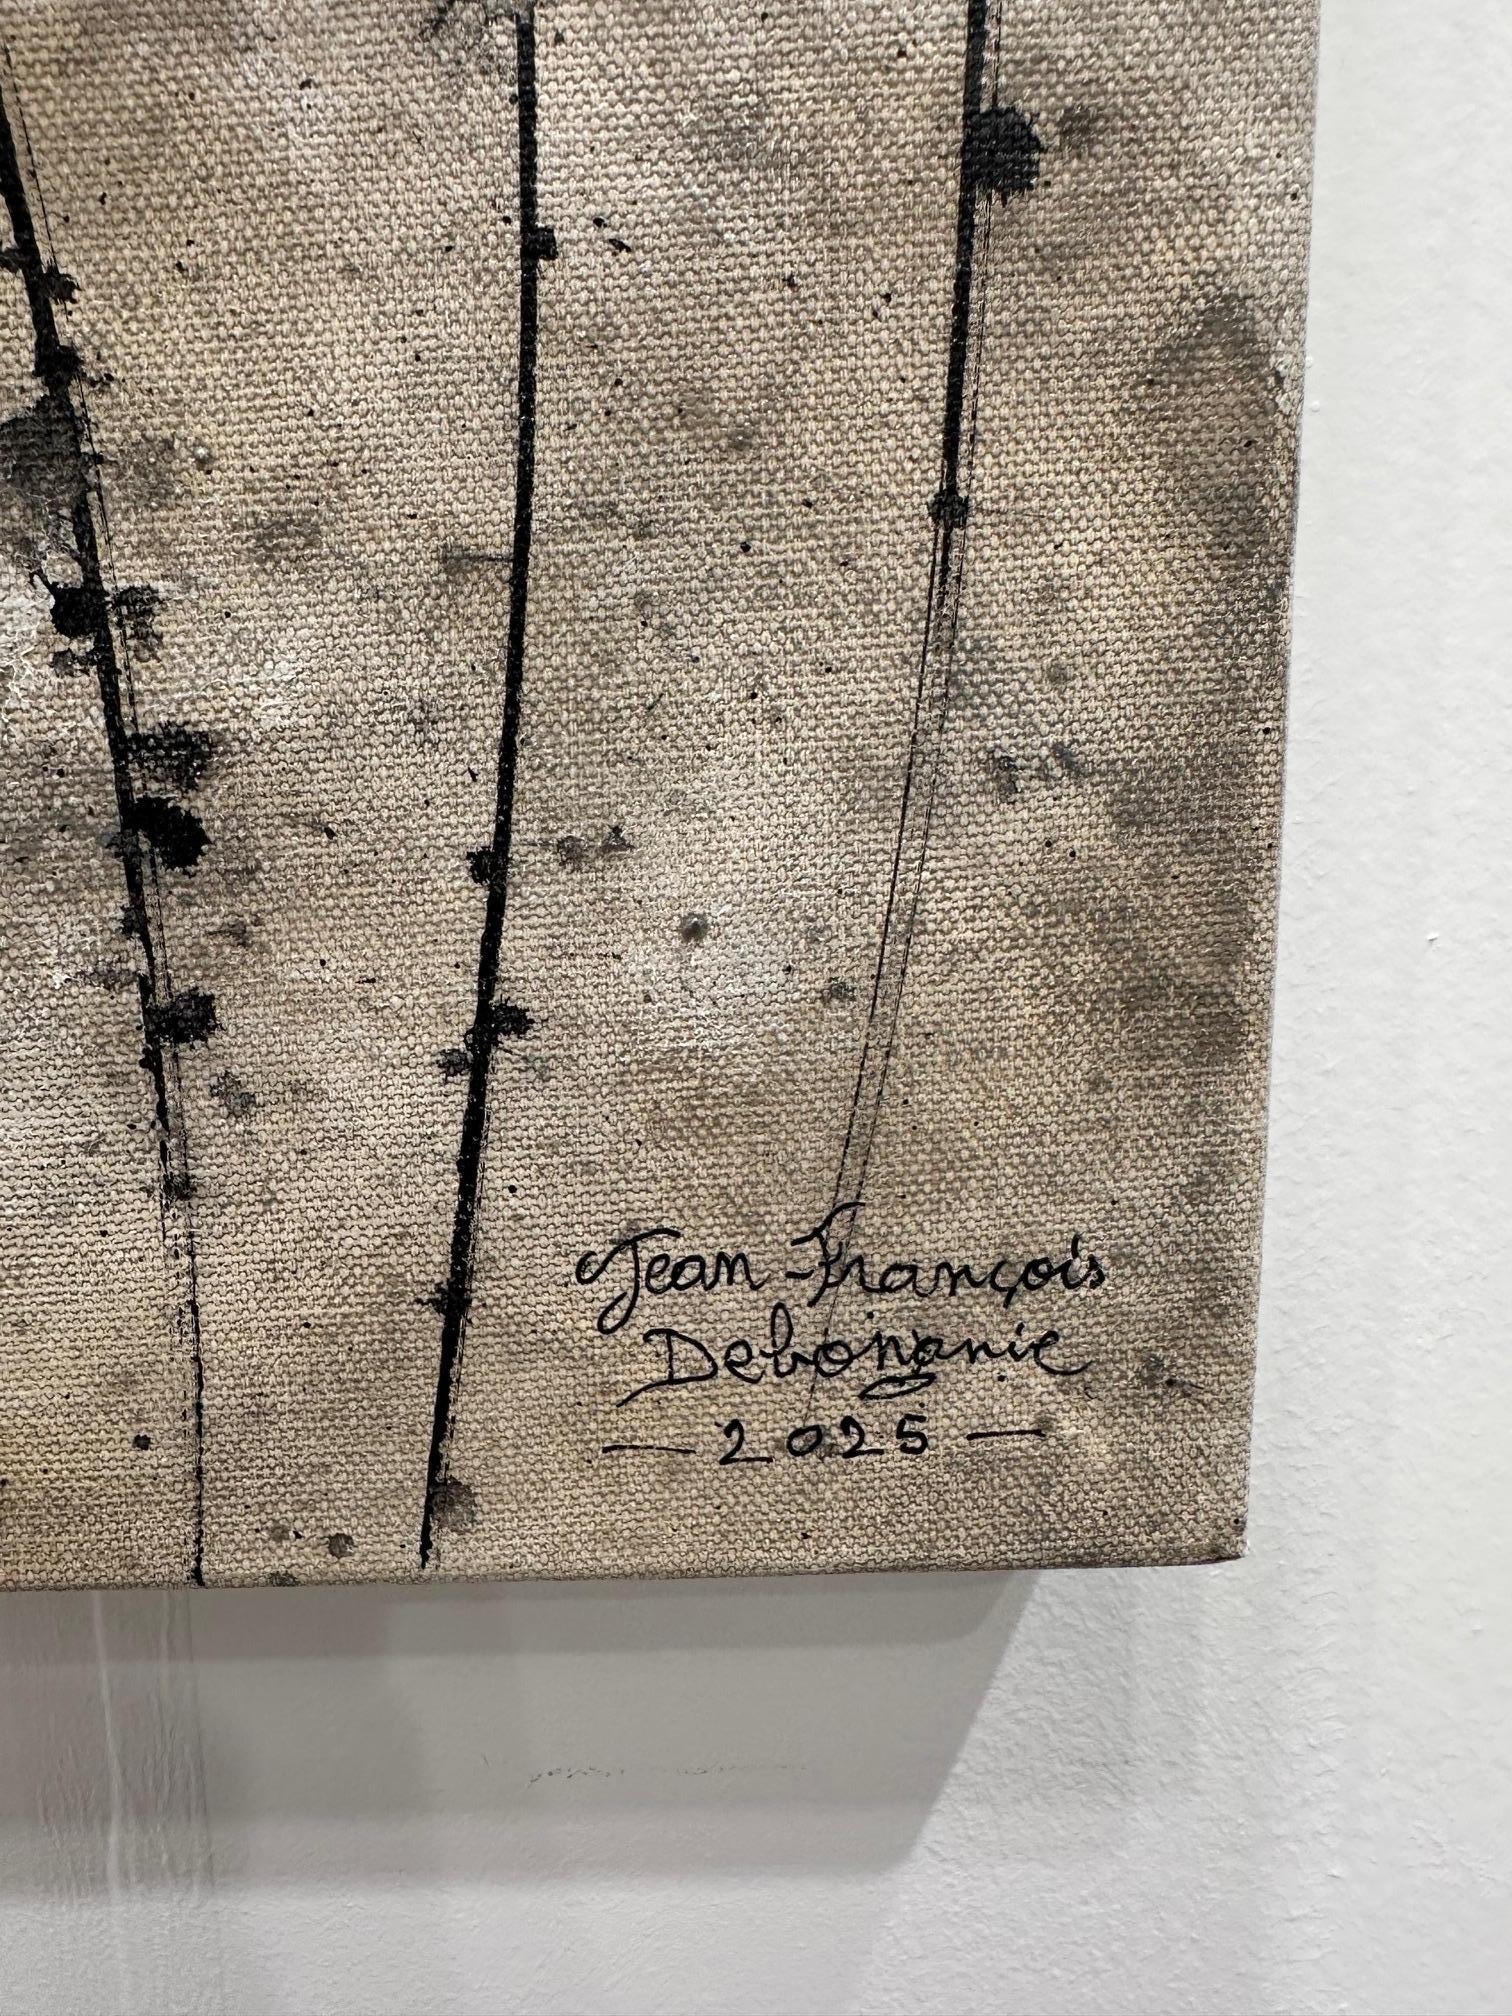 Jean-François
Debonganie
— 2025 —